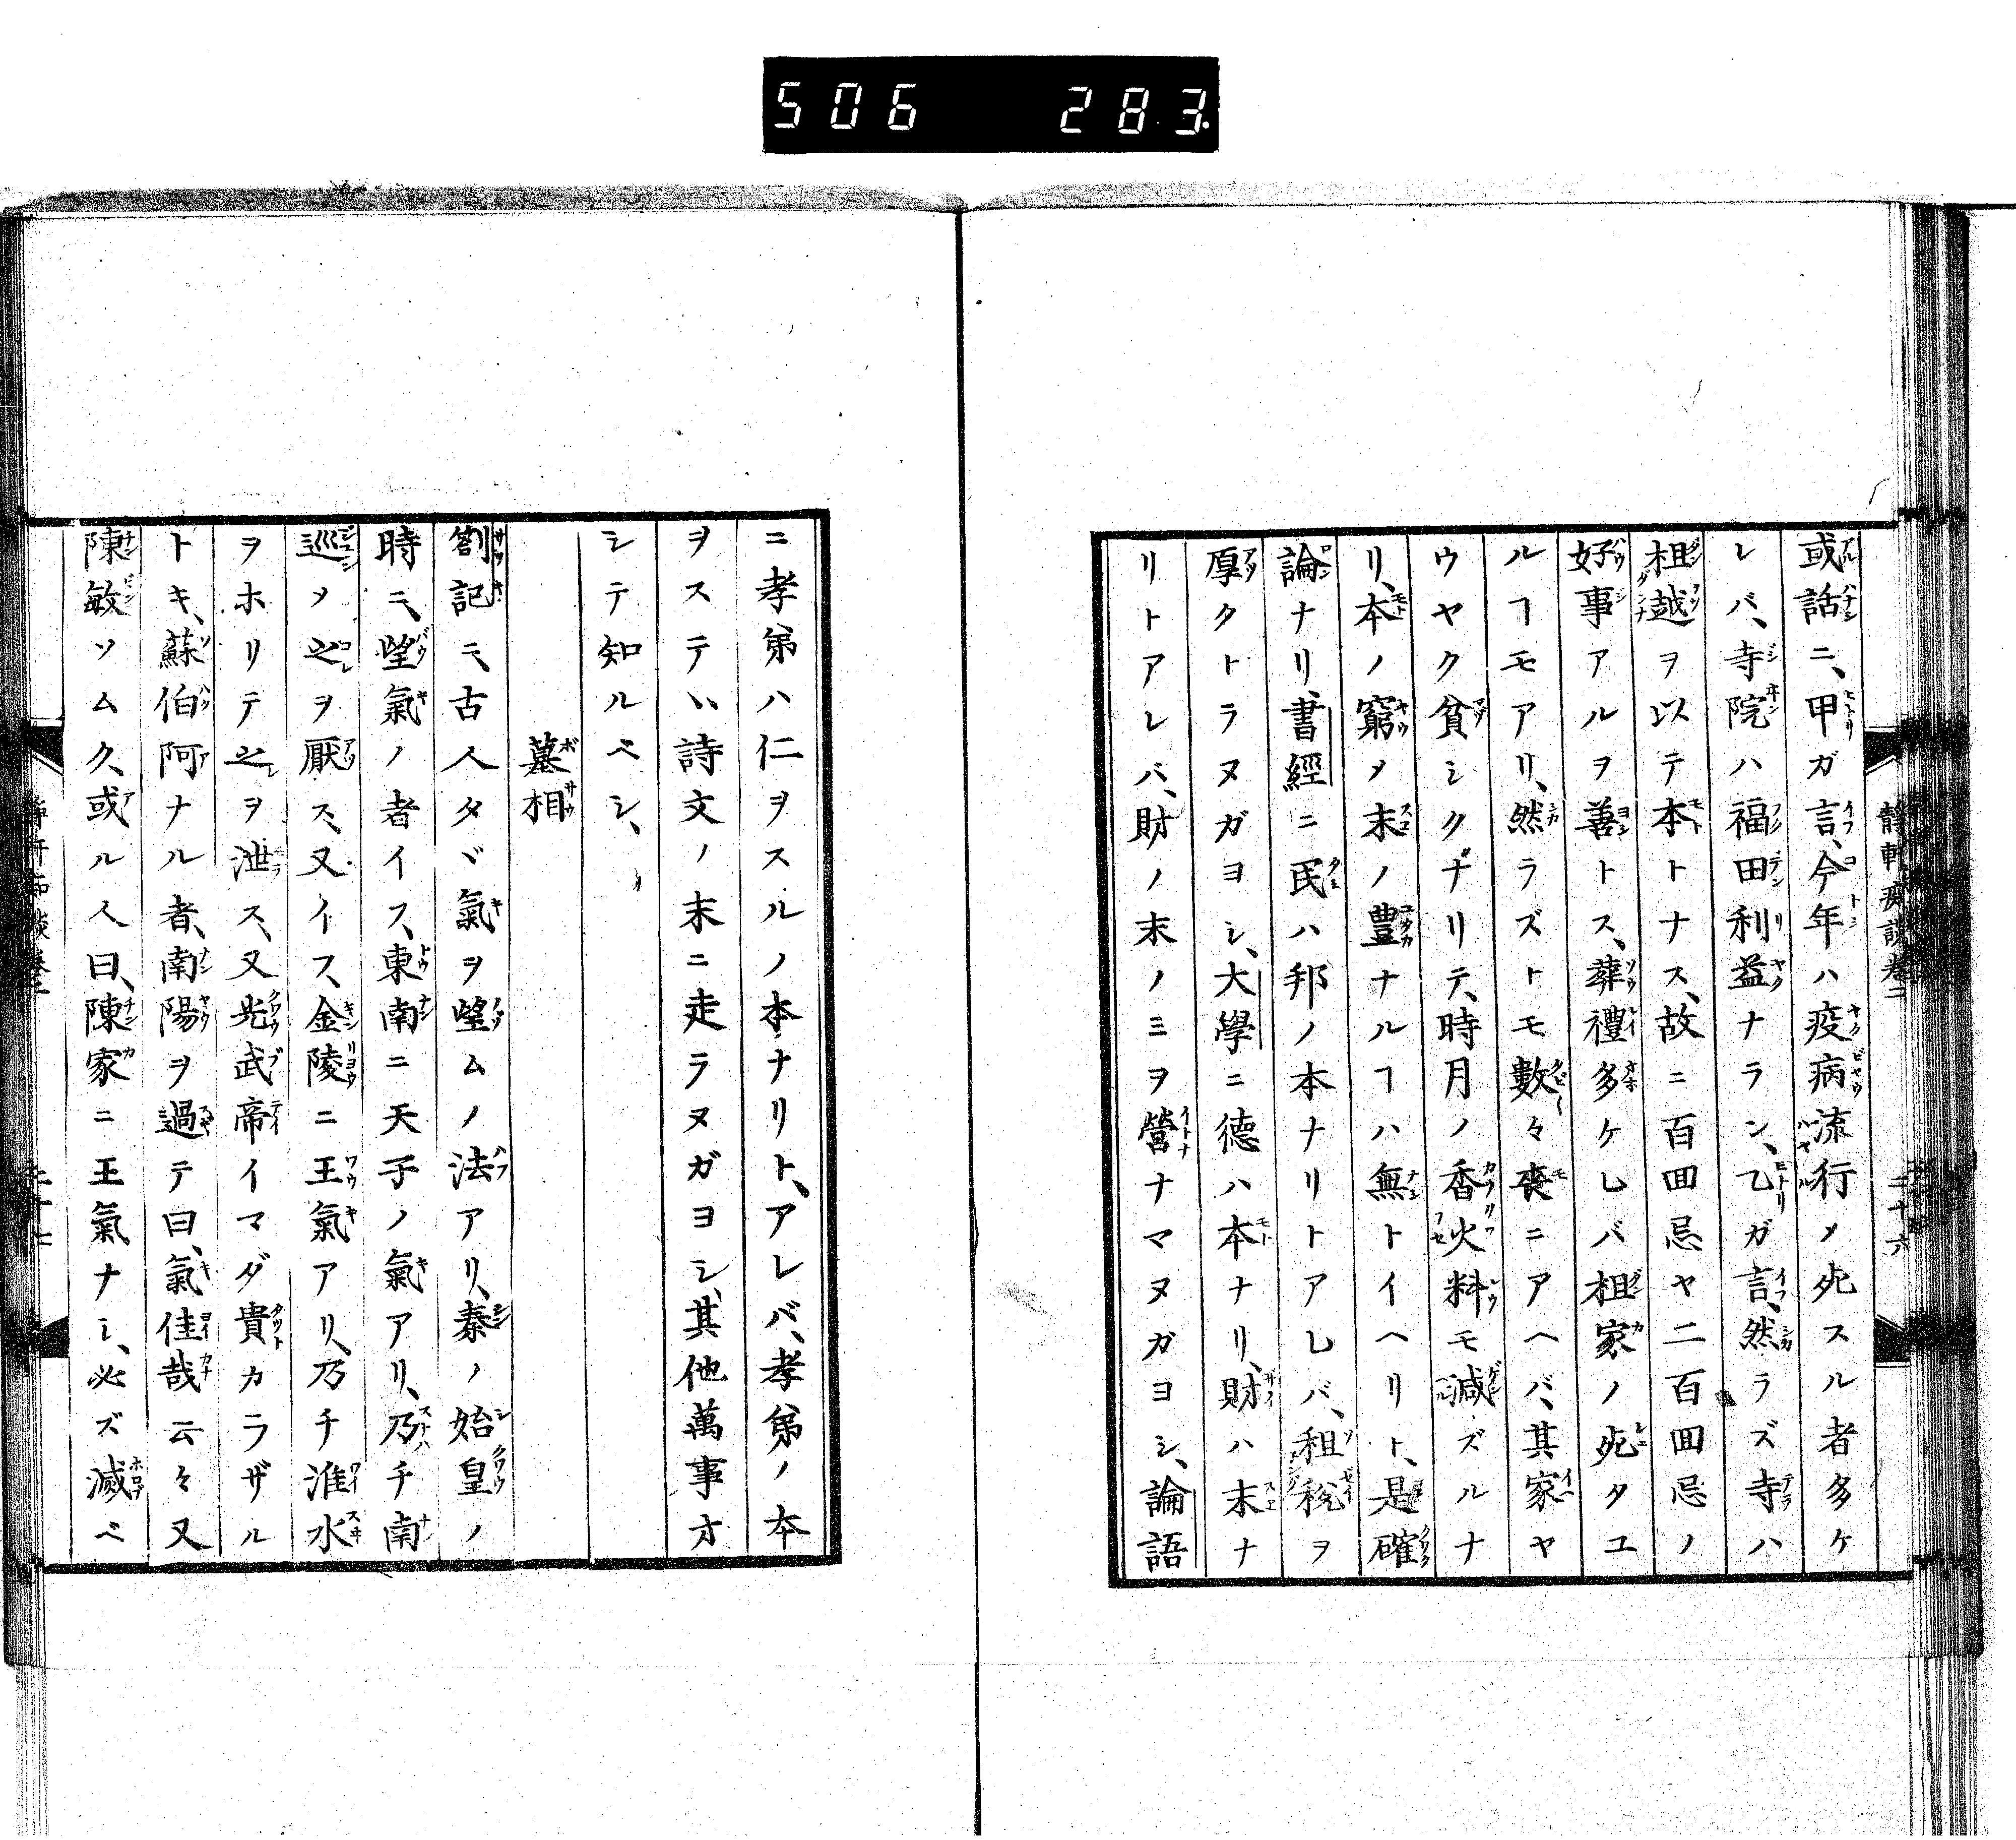 506 283.
靜軒痴談卷二 二十六
或話ニ、甲ガ言、今年ハ疫病流行メ死スル者多ケ
レバ、寺院ハ福田利益ナラン、乙ガ言、然ラズ寺ハ
檀越ヲ以テ本トナス、故ニ百回忌ヤ二百回忌ノ
好事アルヲ善トス、葬禮多ケレバ檀家ノ死タユ
ルヿモアリ、然ラズトモ數々喪ニアヘバ、其家ヤ
ウヤク貧シクナリテ、時月ノ香火料モ減ズルナ
リ、本ノ窮メ末ノ豊ナルヿハ無トイヘリト、是確
論ナリ、書經ニ民ハ邦ノ本ナリトアレバ、租税ヲ
厚クトラヌガヨシ、大學ニ德ハ本ナリ、財ハ末ナ
リトアレバ、財ノ末ノミヲ營ナマヌガヨシ、論語
ニ孝弟ハ仁ヲスルノ本ナリト、アレバ、孝弟ノ本
ヲステヽ詩文ノ末ニ走ラヌガヨシ、其他萬事才
シテ知ルベシ、
墓相
劄記ニ、古人タヾ氣ヲ望ムノ法アリ、秦ノ始皇ノ
時ニ、望氣ノ者イス、東南ニ天子ノ氣アリ、乃チ南
巡メ之ヲ厭ス、又イフ、金陵ニ王氣アリ、乃チ淮水
ヲホリテ之ヲ泄ス、又光武帝イマダ貴カラザル
トキ、蘇伯阿ナル者、南陽ヲ過テ曰、氣佳哉云々又
陳敏ソムク、或ル人曰、陳家ニ王氣ナシ、必ズ滅ベ